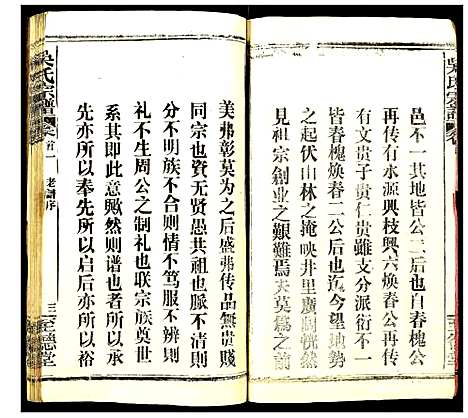 邑不一其地皆公二后也自春槐公
再传有永源興枝興六焕春公再传
有文贵子贵仁贵雖支分派衍不一
皆春槐焕春二公后也今望地勢
之起伏山林之掩映井里廣闊恍然
見祖宗創业之艰難焉夫莫為之前
美弗彰莫為之后盛弗传品無贵賤
同宗也資無贤愚共祖也脉不清則
分不明族不合则情不笃服不辨则
礼不生周公之制礼也联宗族奠世
系其即此意歟然则谱也者所以承
先亦所以奉先所以启后亦所以裕
吳氏宗譜
卷首一
老譜序
三
至德堂